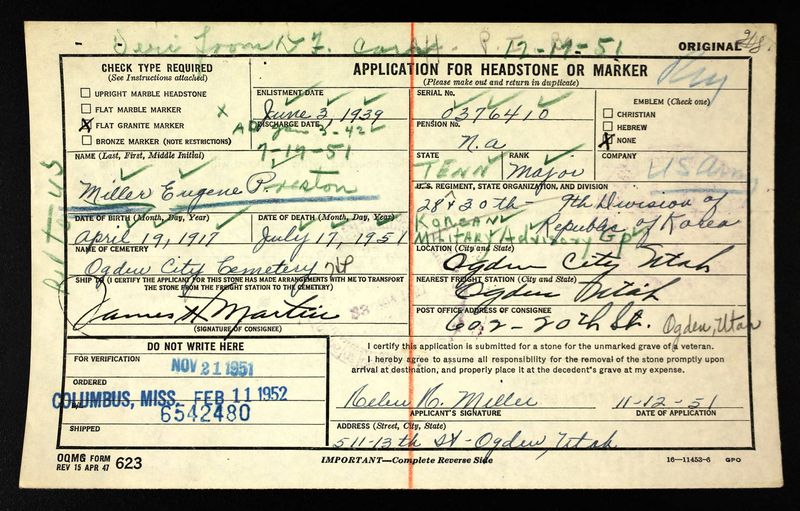 12-19-51
ORIGINAL
CHECK TYPE REQUIRED
(See Instructions attached)
UPRIGHT MARBLE HEADSTONE
FLAT MARBLE MARKER
X FLAT GRANITE MARKER
BRONZE MARKER (NOTE RESTRICTIONS)
APPLICATION FOR HEADSTONE OR MARKER
(Please make out and return in duplicate)
ENLISTMENT DATE
June 3, 1939
AD Jan 3-42
DISCHARGE DATE
7-17-51
SERIAL No.
0376410
PENSION No.
n.a
EMBLEM (Check one)
CHRISTIAN
HEBREW
X NONE
NAME (Last, First, Middle Initial)
Miller Eugene Preston
STATE
TENN
RANK
Major
COMPANY
US Army
U.S. REGIMENT, STATE ORGANIZATION, AND DIVISION
28 & 30th - 9th Division of
Republic of Korea
KOREAN
MILITARY Advisory GP
DATE OF BIRTH (Month, Day, Year)
April 9, 1917
DATE OF DEATH (Month, Day, Year)
July 17, 1951
NAME OF CEMETERY
Ogden City Cemetery
LOCATION (City and State)
Ogden City Utah
SHIP TO (I CERTIFY THE APPLICANT FOR THIS STONE HAS MADE ARRANGEMENTS WITH ME TO TRANSPORT
THE STONE FROM THE FREIGHT STATION TO THE CEMETERY)
James H Martin
(SIGNATURE OF CONSIGNEE)
NEAREST FREIGHT STATION (City and State)
Ogden Utah
POST OFFICE ADDRESS OF CONSIGNEE
602-20th St. Ogden, Utah
DO NOT WRITE HERE
FOR VERIFICATION
NOV 21 1951
ORDERED
COLUMBUS, MISS. FEB 11 1952
6542480
SHIPPED
I certify this application is submitted for a stone for the unmarked grave of a veteran.
I hereby agree to assume all responsibility for the removal of the stone promptly upon
arrival at destination, and properly place it at the decedent's grave at my expense.
Helen R. Miller
11-12-51
APPLICANT'S SIGNATURE
DATE OF APPLICATION
ADDRESS (Street, City, State)
511-13th St - Ogden, Utah
OQMG FORM
REV 15 APR 47 623
IMPORTANT—Complete Reverse Side
16—11453-6 GPO